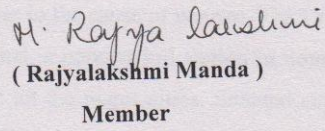 M. Rajya Lakshmi
( Rajyalakshmi Manda )
Member